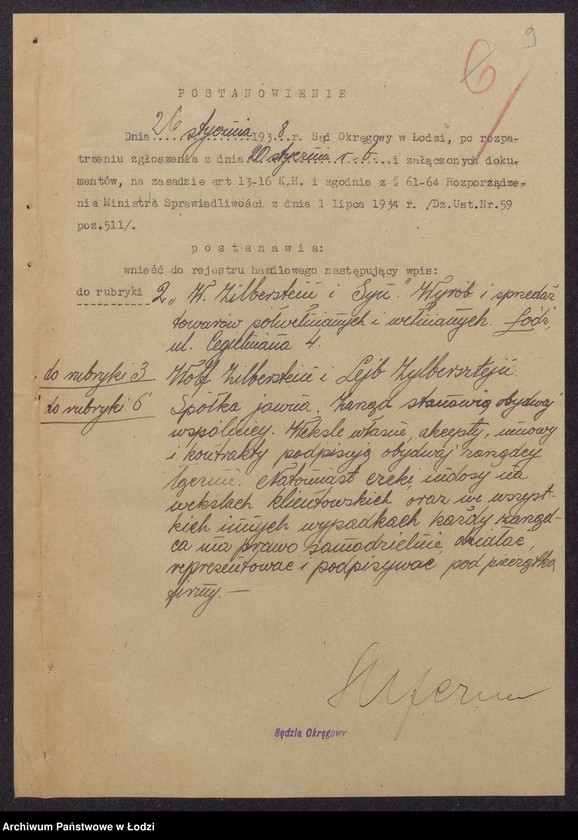 9
6
POSTANOWIENIE
Dnia 26 stycznia 1938 r. Sąd Okręgowy w Łodzi, po rozpa-
trzeniu zgłoszenia z dnia 20 stycznia r. b. i załączonych doku-
mentów, na zasadzie art 13-16 K.H. i zgodnie z § 61-64 Rozporządze-
nia Ministra Sprawiedliwości z dnia 1 lipca 1934 r. /Dz.Ust.Nr.59
poz.511/.
postanawia:
wnieść do rejestru handlowego następujący wpis:
do rubryki 2 „W. Zilberstein i Syn." Wyrób i sprzedaż
towarów półwełnianych i wełnianych. Łódź,
ul. Cegielniana 4.
do rubryki 3 Wolf Zilberstein i Lejb Zylbersztejn.
do rubryki 6 Spółka jawna. Zarząd stanowią obydwaj
wspólnicy. Weksle własne, akcepty, umowy
i kontrakty podpisują obydwaj zarządcy
łącznie. Natomiast czeki, indosy na
wekslach klientowskich, oraz we wszyst-
kich innych wypadkach każdy zarząd-
ca ma prawo samodzielnie, działać,
reprezentować i podpisywać pod pieczątką
firmy. —
Sędzia Okręgowy
Archiwum Państwowe w Łodzi